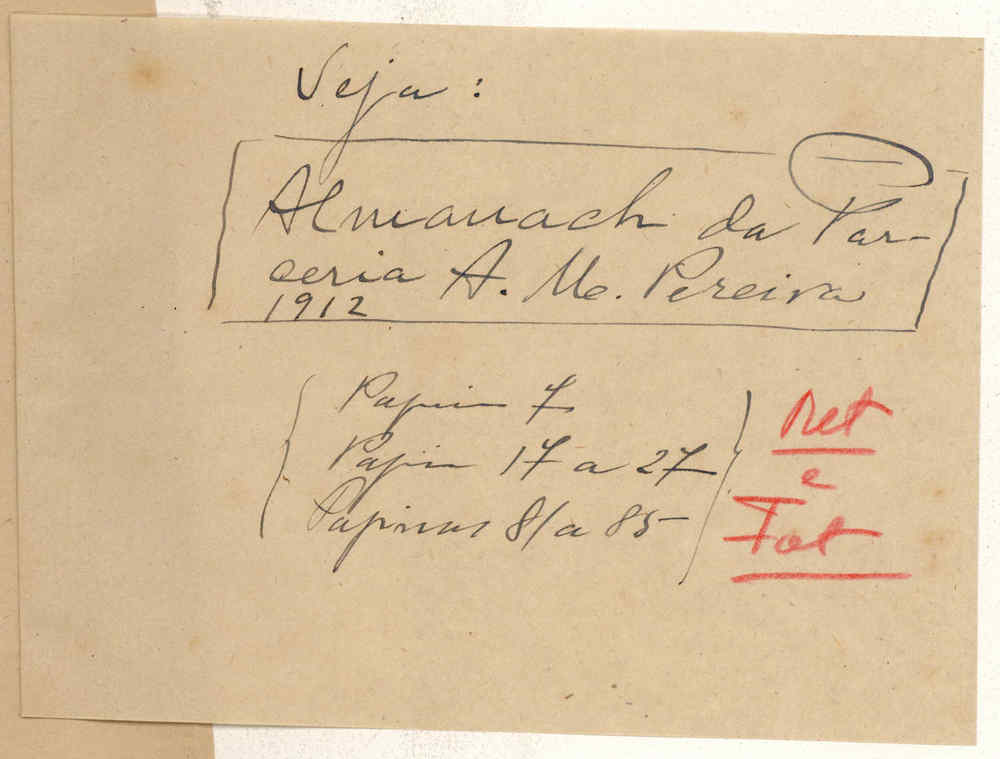 Veja:
Almanach da Par-
ceria A. M. Pereira
1912
Pagina 7
Pagina 17 a 27
Paginas 81 a 85
Ret
e
Fot